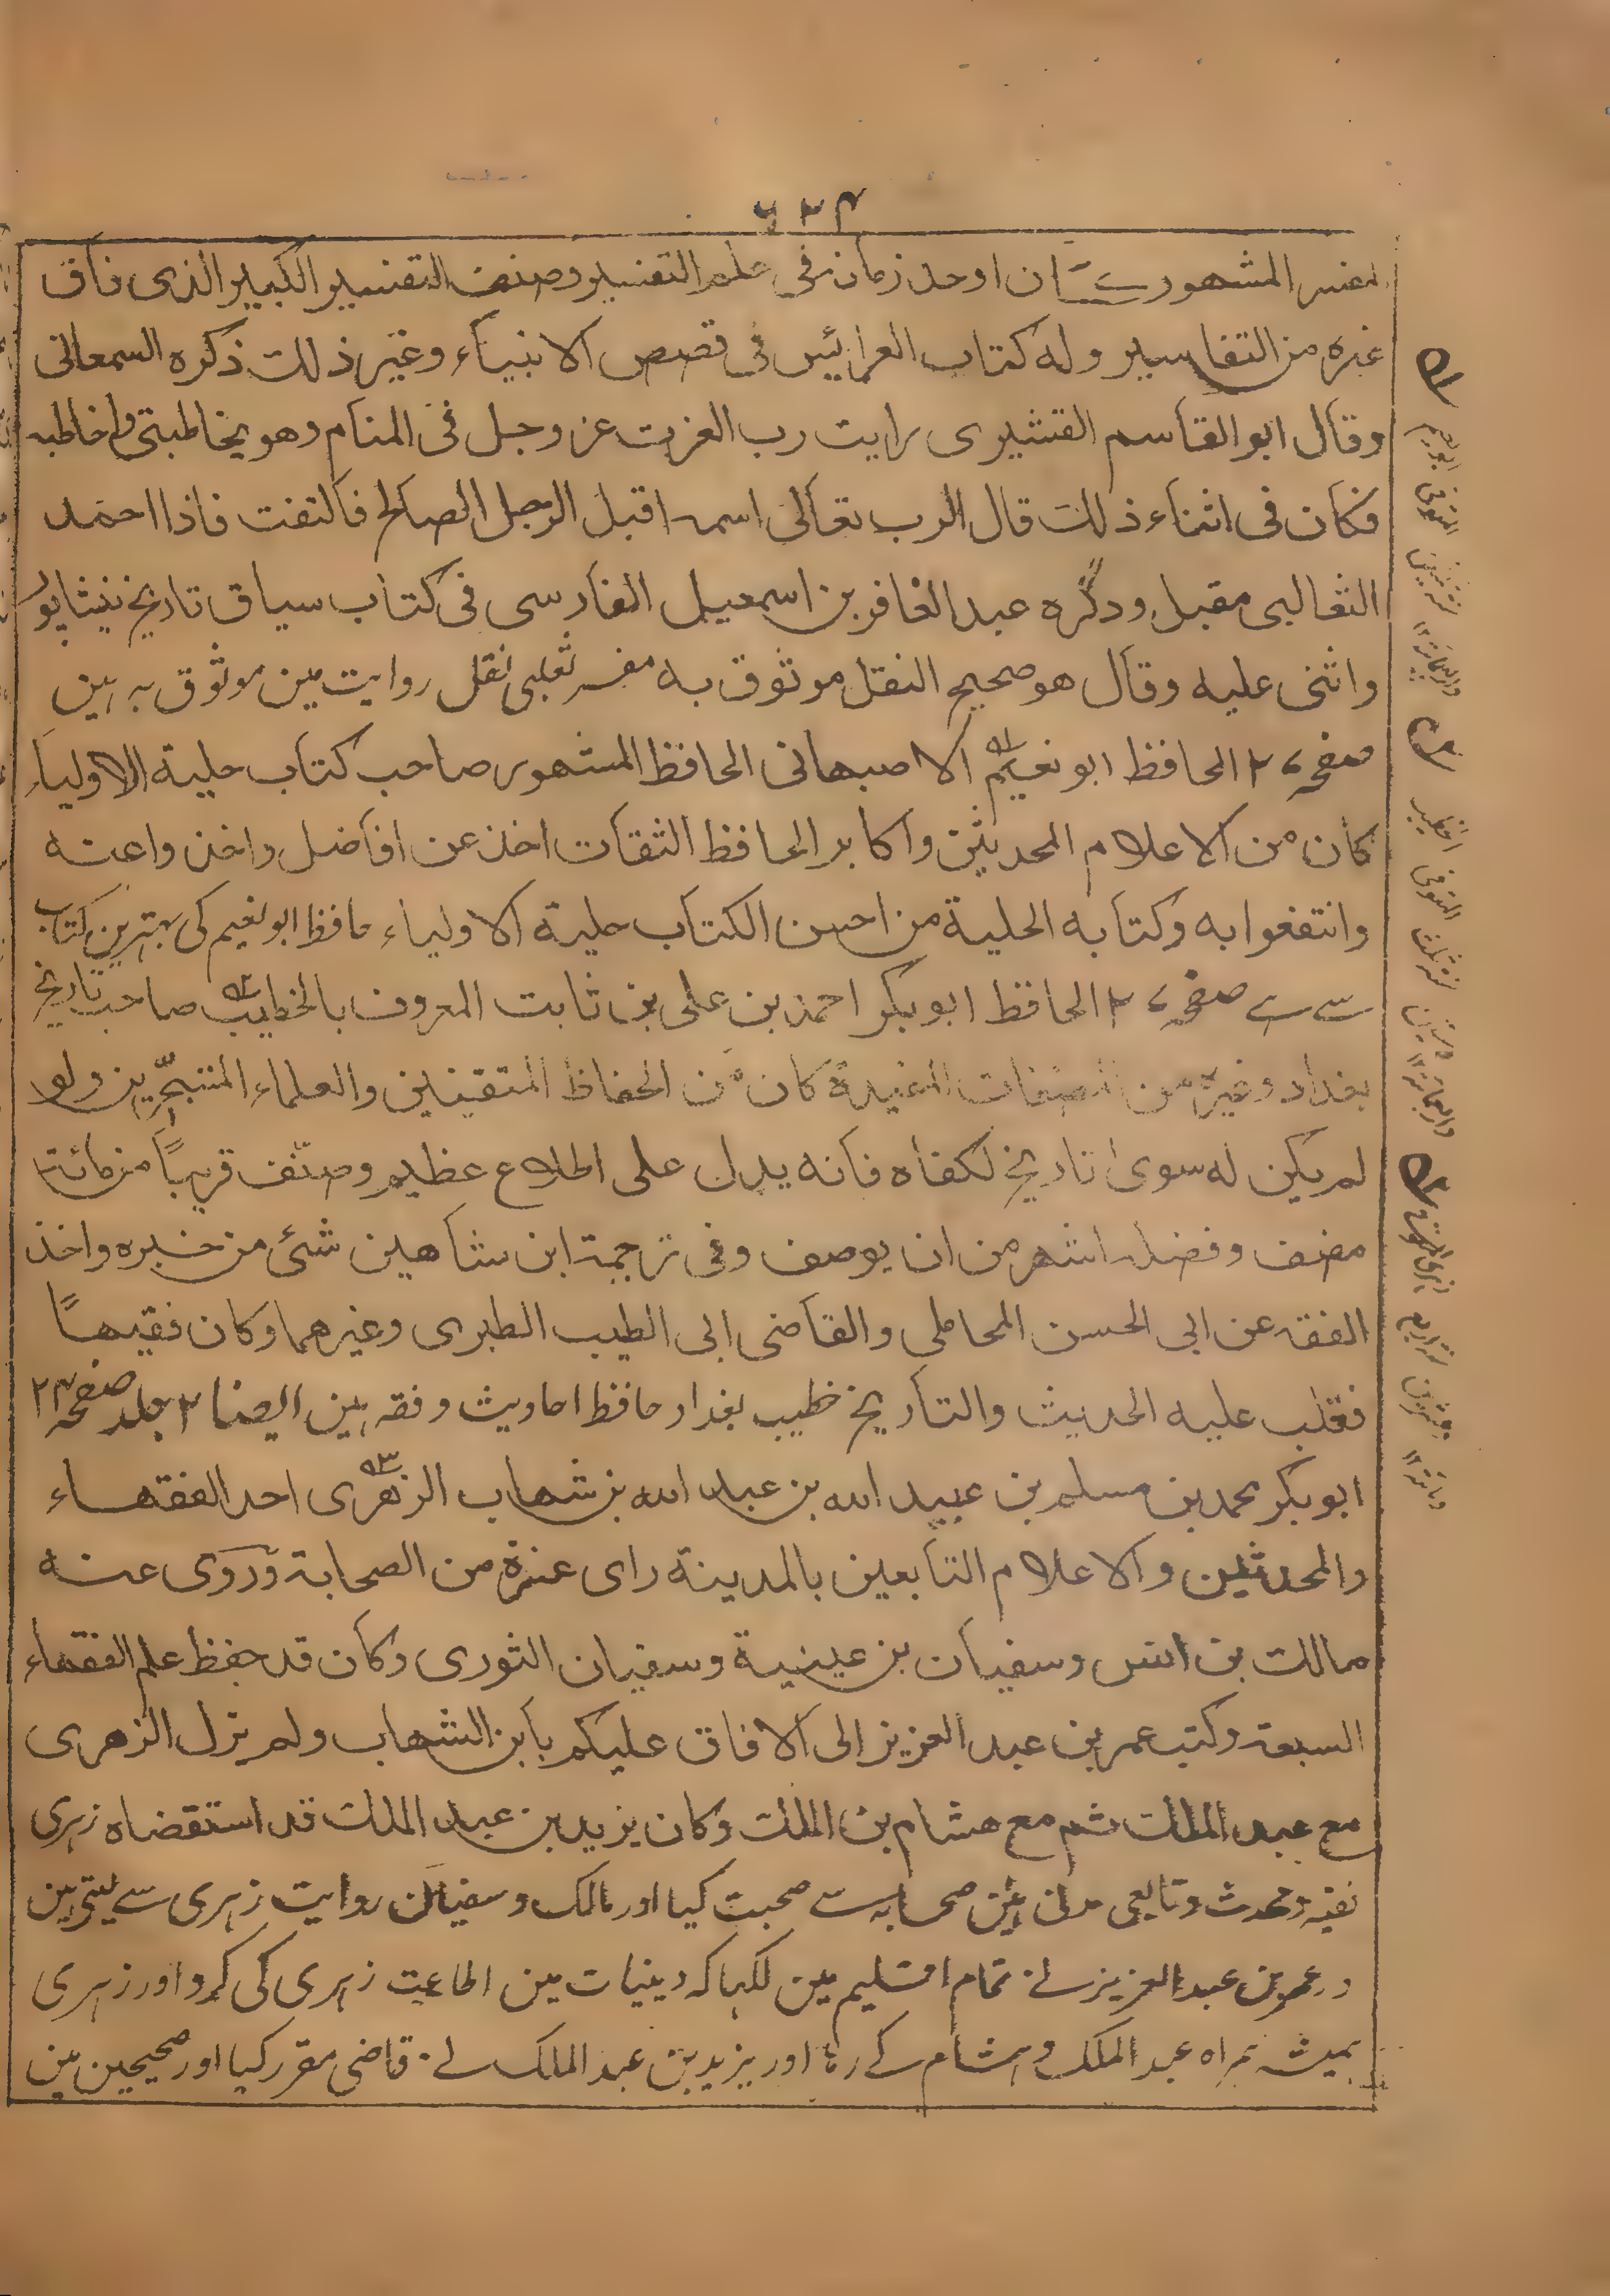 ۶۲۴
المفسر المشهور كان اوحد زمانه فى علم التفسير وصنف التفسير الكبير الذى فاق
غيره من التفاسير وله كتاب العرائيس فى قصص الانبياء وغير ذلك ذكره السمعانى
وقال ابو القاسم القشيرى رايت رب العزت عز وجل فى المنام وهو يخاطبنى واخاطبه
فكان فى اثناء ذلك قال الرب تعالى اسمه اقبل الرجل الصالح فالتفت فاذا احمد
الثعالبى مقبل وذكره عبد الغافر بن اسمعيل الفارسى فى كتاب سياق تاريخ نيشاپور
واثنى عليه وقال هو صحيح النقل موثوق به مفسر ثعلبى نقل روايت مين موثوق به ہين
صفحہ ۲۷ الحافظ ابو نعيم الاصبهانى الحافظ المشهور صاحب كتاب حلية الاولياء
كان من الاعلام المحدثين واكابر الحافظ الثقات اخذ عن افاضل واخذ واعنه
وانتفعوا به وكتابه الحلية من احسن الكتاب حلية الاولياء حافظ ابو نعيم كى بہترين كتاب
سے ہے صفحہ ۲۷ الحافظ ابو بكر احمد بن على بن ثابت المعروف بالخطيب صاحب تاريخ
بغداد وغيره من المصنفات المفيدة كان من الحفاظ المتقينين والعلماء المتبحّرين ولو
لم يكن له سوى تاريخ لكفاه فانه يدل على اطلاع عظيم وصنّف قريبًا من مائة
مصنف وفضله اشهر من ان يوصف وفى ترجمة ابن شاهين شئى من خبره واخذ
الفقه عن ابى الحسن المحاملى والقاضى ابى الطيب الطبرى وغيرهما وكان فقيهًا
فغلب عليه الحديث والتاريخ خطيب بغداد حافظ احاديث وفقہ ہين ايضا ۲ جلد صفحہ ۲۳
ابو بكر محمد بن مسلم بن عبيد الله بن عبد الله بن شهاب الزهرى احد الفقهاء
والمحدثين والاعلام التابعين بالمدينة راى عشرة من الصحابة وروى عنه
مالك بن انس وسفيان بن عينية وسفيان الثورى وكان قد حفظ علم الفقهاء
السبعة وكتب عمر بن عبد العزيز الى الافاق عليكم بابن الشهاب ولم يزل الزهرى
مع عبد الملك ثم مع هشام بن الملك وكان يزيد بن عبد الملك قد استقضاه زہرى
فقيہ ومحدث وتابعى مدنى ہين صحابہ سے صحبت كيا اور مالك وسفيان روايت زہرى سے ليتے ہين
ور عمر بن عبد العزيز نے تمام اقليم مين لكہا كہ دينيات مين اطاعت زہرى كى كرو اور زہرى
ہميشہ ہمراہ عبد الملك وہشام كے رہا اور يزيد بن عبد المالك نے قاضى مقرر كيا اور صحيحين مين
ابو نعيم
المتوفى
الخطيب
المتوفى